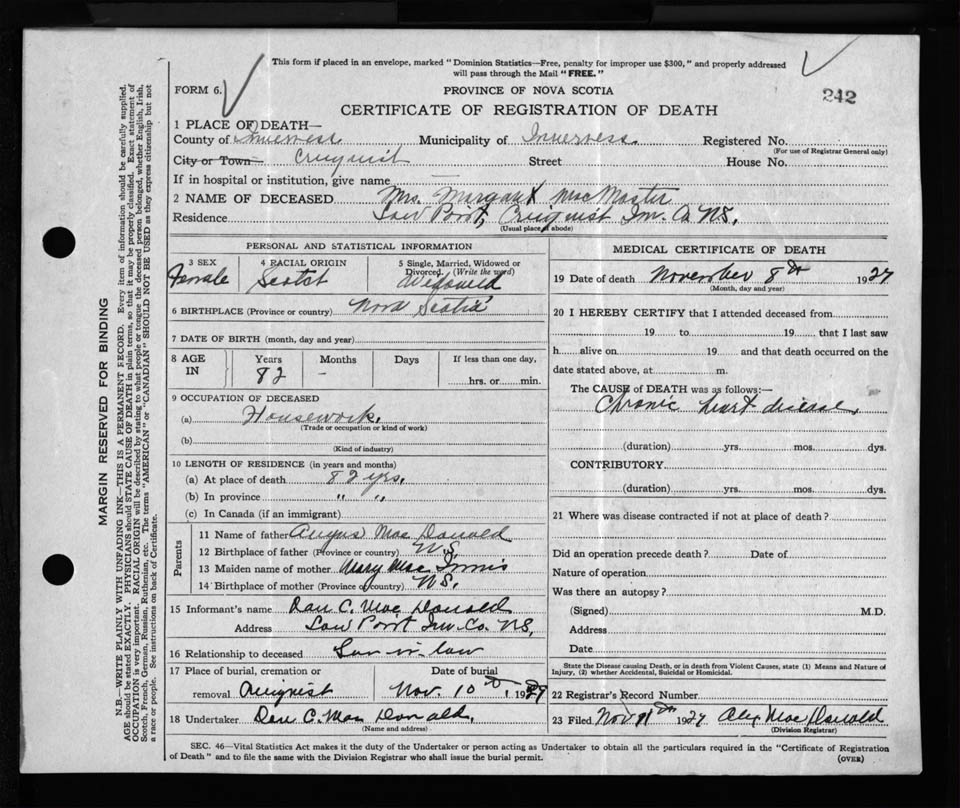 This form if placed in an envelope, marked "Dominion Statistics—Free, penalty for improper use $300," and properly addressed
will pass through the Mail "FREE."
FORM 6.
PROVINCE OF NOVA SCOTIA
242
CERTIFICATE OF REGISTRATION OF DEATH
1 PLACE OF DEATH—
County of Inverness Municipality of Inverness Registered No.
(For use of Registrar General only)
City or Town Creignish Street House No.
If in hospital or institution, give name —
2 NAME OF DECEASED Mrs. Margaret MacMaster
Residence Low Point, Creignish Inv. Co. N.S.
(Usual place of abode)
PERSONAL AND STATISTICAL INFORMATION
3 SEX 4 RACIAL ORIGIN 5 Single, Married, Widowed or
Divorced. (Write the word)
Female Scotch Widowed
6 BIRTHPLACE (Province or country) Nova Scotia
7 DATE OF BIRTH (month, day and year)
8 AGE IN Years Months Days If less than one day,
82 - hrs. or min.
9 OCCUPATION OF DECEASED
(a) Housework.
(Trade or occupation or kind of work)
(b)
(Kind of industry)
10 LENGTH OF RESIDENCE (in years and months)
(a) At place of death 82 yrs.
(b) In province " "
(c) In Canada (if an immigrant)
Parents
11 Name of father Angus Mac Donald
12 Birthplace of father (Province or country) N.S.
13 Maiden name of mother Mary Mac Innis
14 Birthplace of mother (Province or country) N.S.
15 Informant's name Dan C. Mac Donald
Address Low Point Inv. Co. N.S,
16 Relationship to deceased Son in law
17 Place of burial, cremation or Date of burial
removal Creignish Nov. 10th 1927
18 Undertaker Dan C. Mac Donald.
(Name and address)
MEDICAL CERTIFICATE OF DEATH
19 Date of death November 8th 1927
(Month, day and year)
20 I HEREBY CERTIFY that I attended deceased from
19 to 19 that I last saw
h alive on 19 and that death occurred on the
date stated above, at m.
The CAUSE of DEATH was as follows:—
Chronic heart disease.
(duration) yrs. mos. dys.
CONTRIBUTORY
(duration) yrs. mos. dys.
21 Where was disease contracted if not at place of death?
Did an operation precede death? Date of
Nature of operation
Was there an autopsy?
(Signed) M.D.
Address
Date
State the Disease causing Death, or in death from Violent Causes, state (1) Means and Nature of
Injury, (2) whether Accidental, Suicidal or Homicidal.
22 Registrar's Record Number
23 Filed Nov 11th 1927 Alex Mac Donald
(Division Registrar)
SEC. 46—Vital Statistics Act makes it the duty of the Undertaker or person acting as Undertaker to obtain all the particulars required in the "Certificate of Registration
of Death" and to file the same with the Division Registrar who shall issue the burial permit.
(OVER)
MARGIN RESERVED FOR BINDING
N.B.—WRITE PLAINLY, WITH UNFADING INK—THIS IS A PERMANENT RECORD. Every item of information should be carefully supplied.
AGE should be stated EXACTLY. PHYSICIANS should STATE CAUSE OF DEATH in plain terms, so that it may be properly classified. Exact statement of
OCCUPATION is very important. RACIAL ORIGIN will be described by stating to what people or tongue the deceased person belonged, whether English, Irish,
Scotch, French, German, Russian, Ruthenian, etc. The terms "AMERICAN" or "CANADIAN" SHOULD NOT BE USED as they express citizenship but not
a race or people. See instructions on back of Certificate.